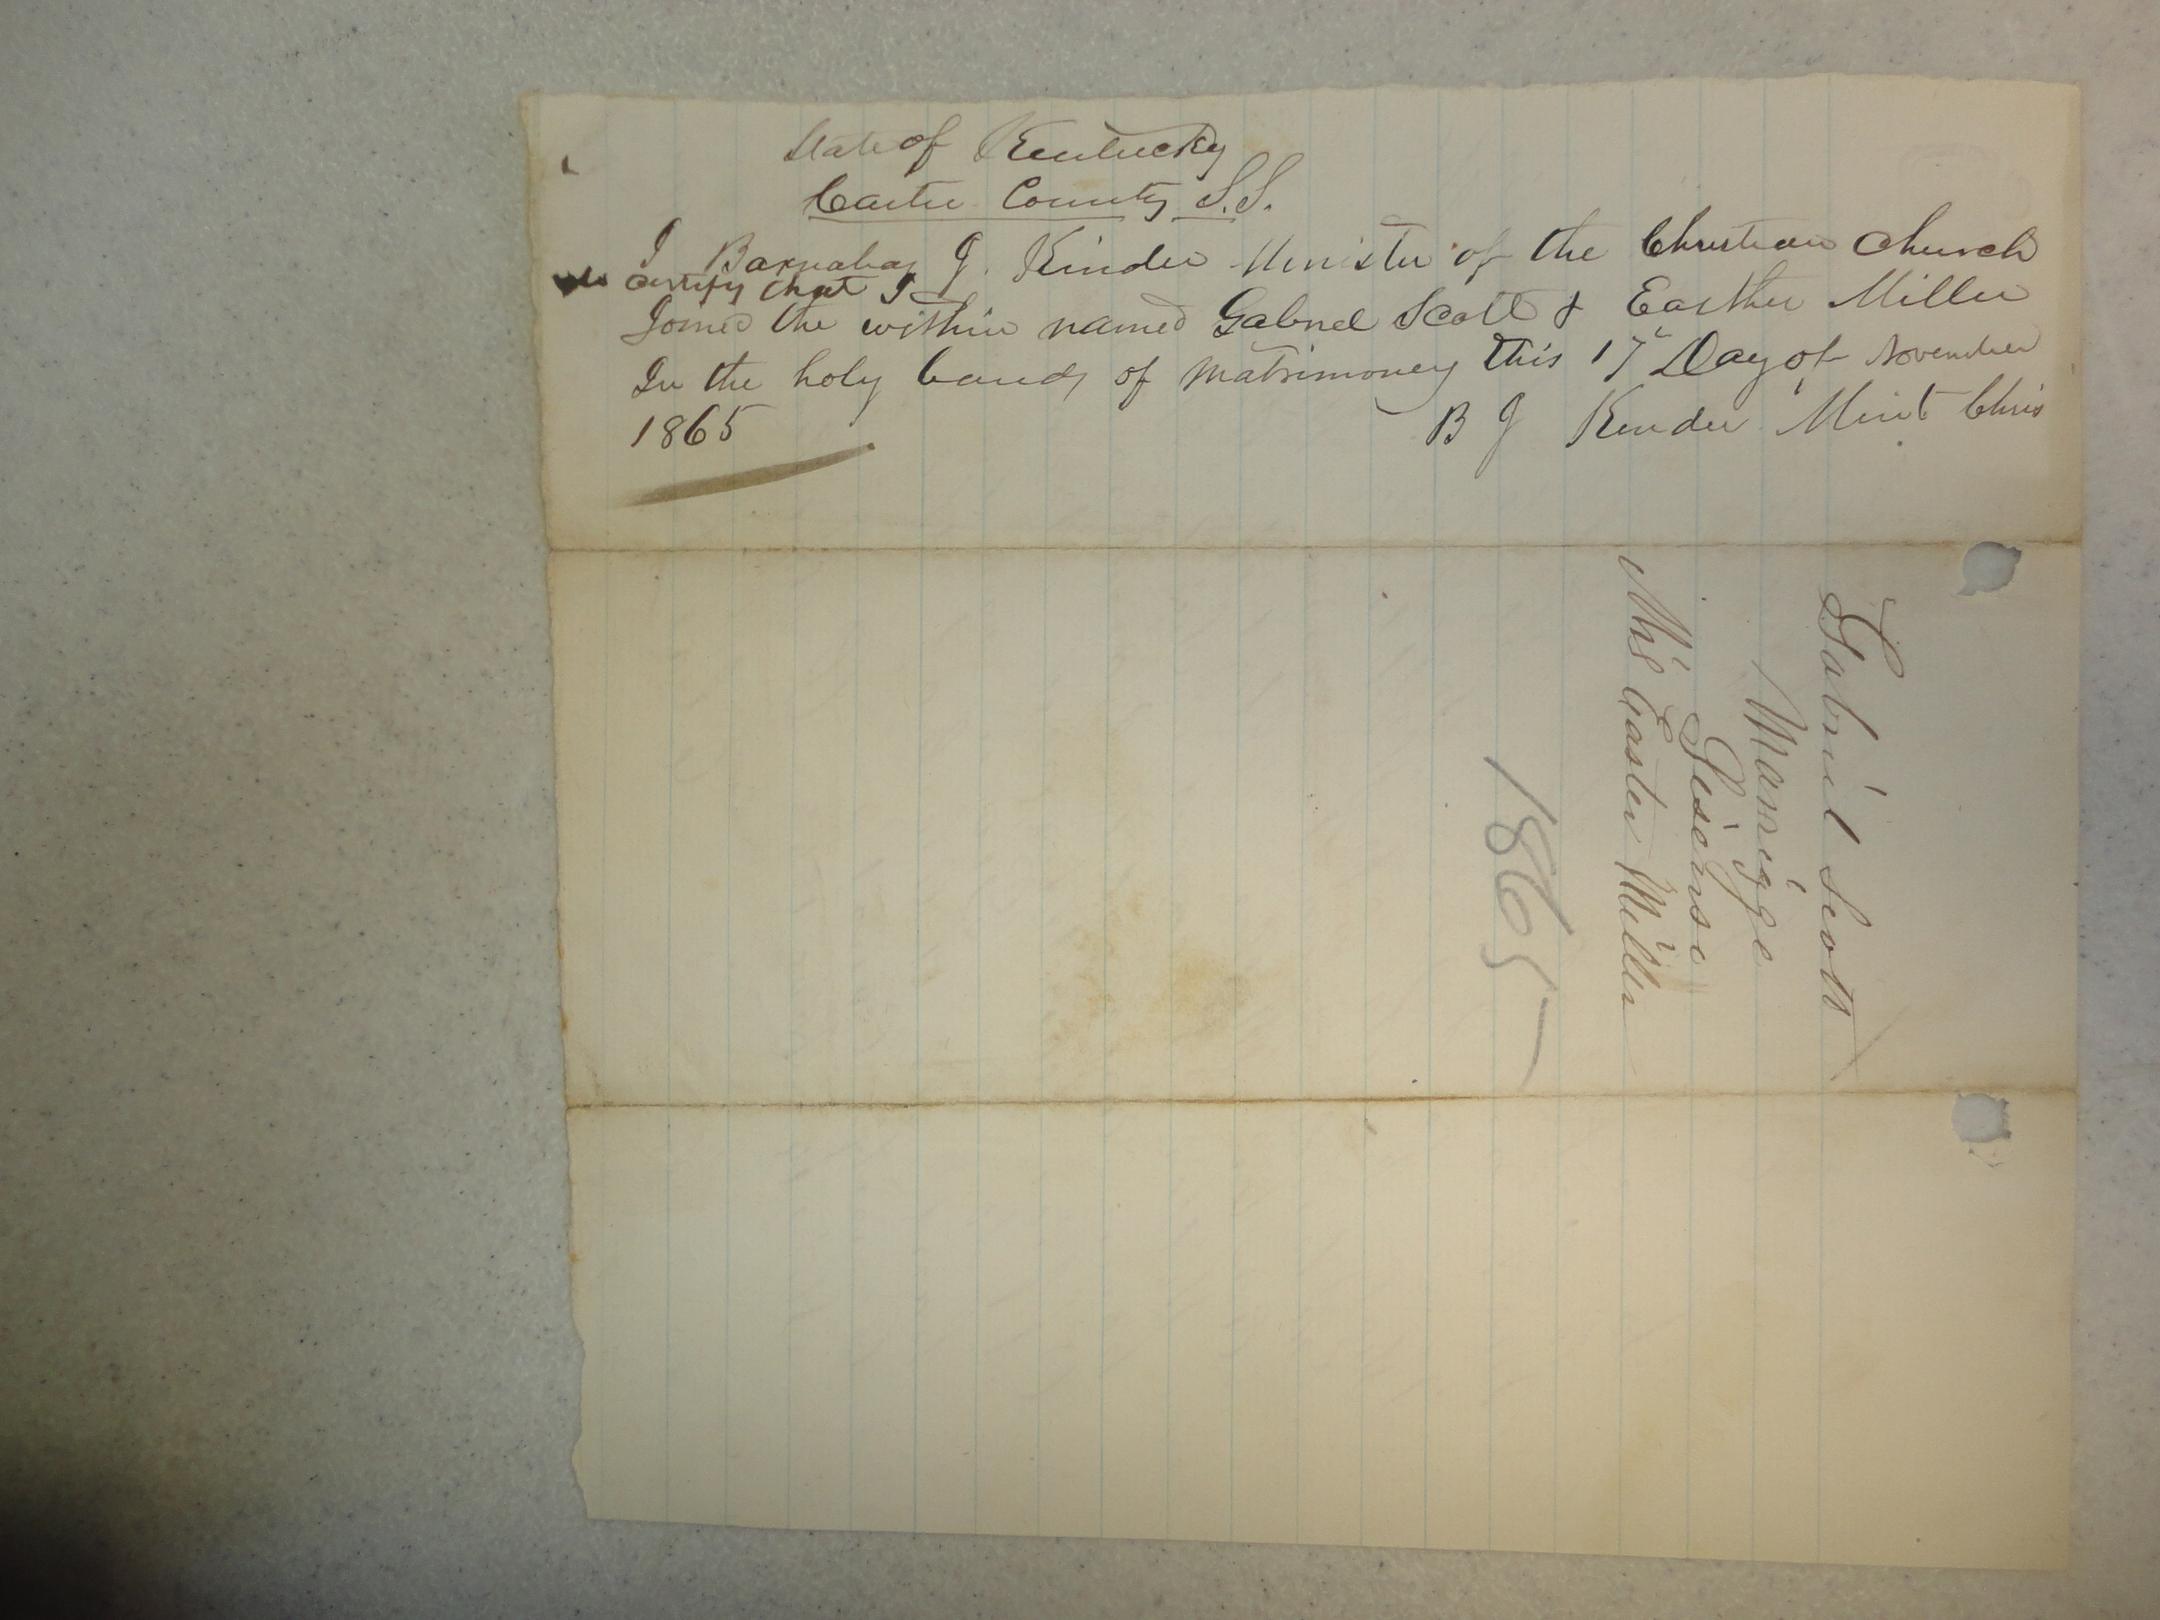 State of Kentucky
Carter County S.S.
I Barnabas J. Kinder Minister of the Christian Church
certify that I
Joined the within named Gabriel Scott & Easther Miller
In the holy bands of Matrimoney this 17 Day of November
1865 B J Kinder Minit Chris
Gabriel Scott
Marrige
Lisense
Easter Miller
1865